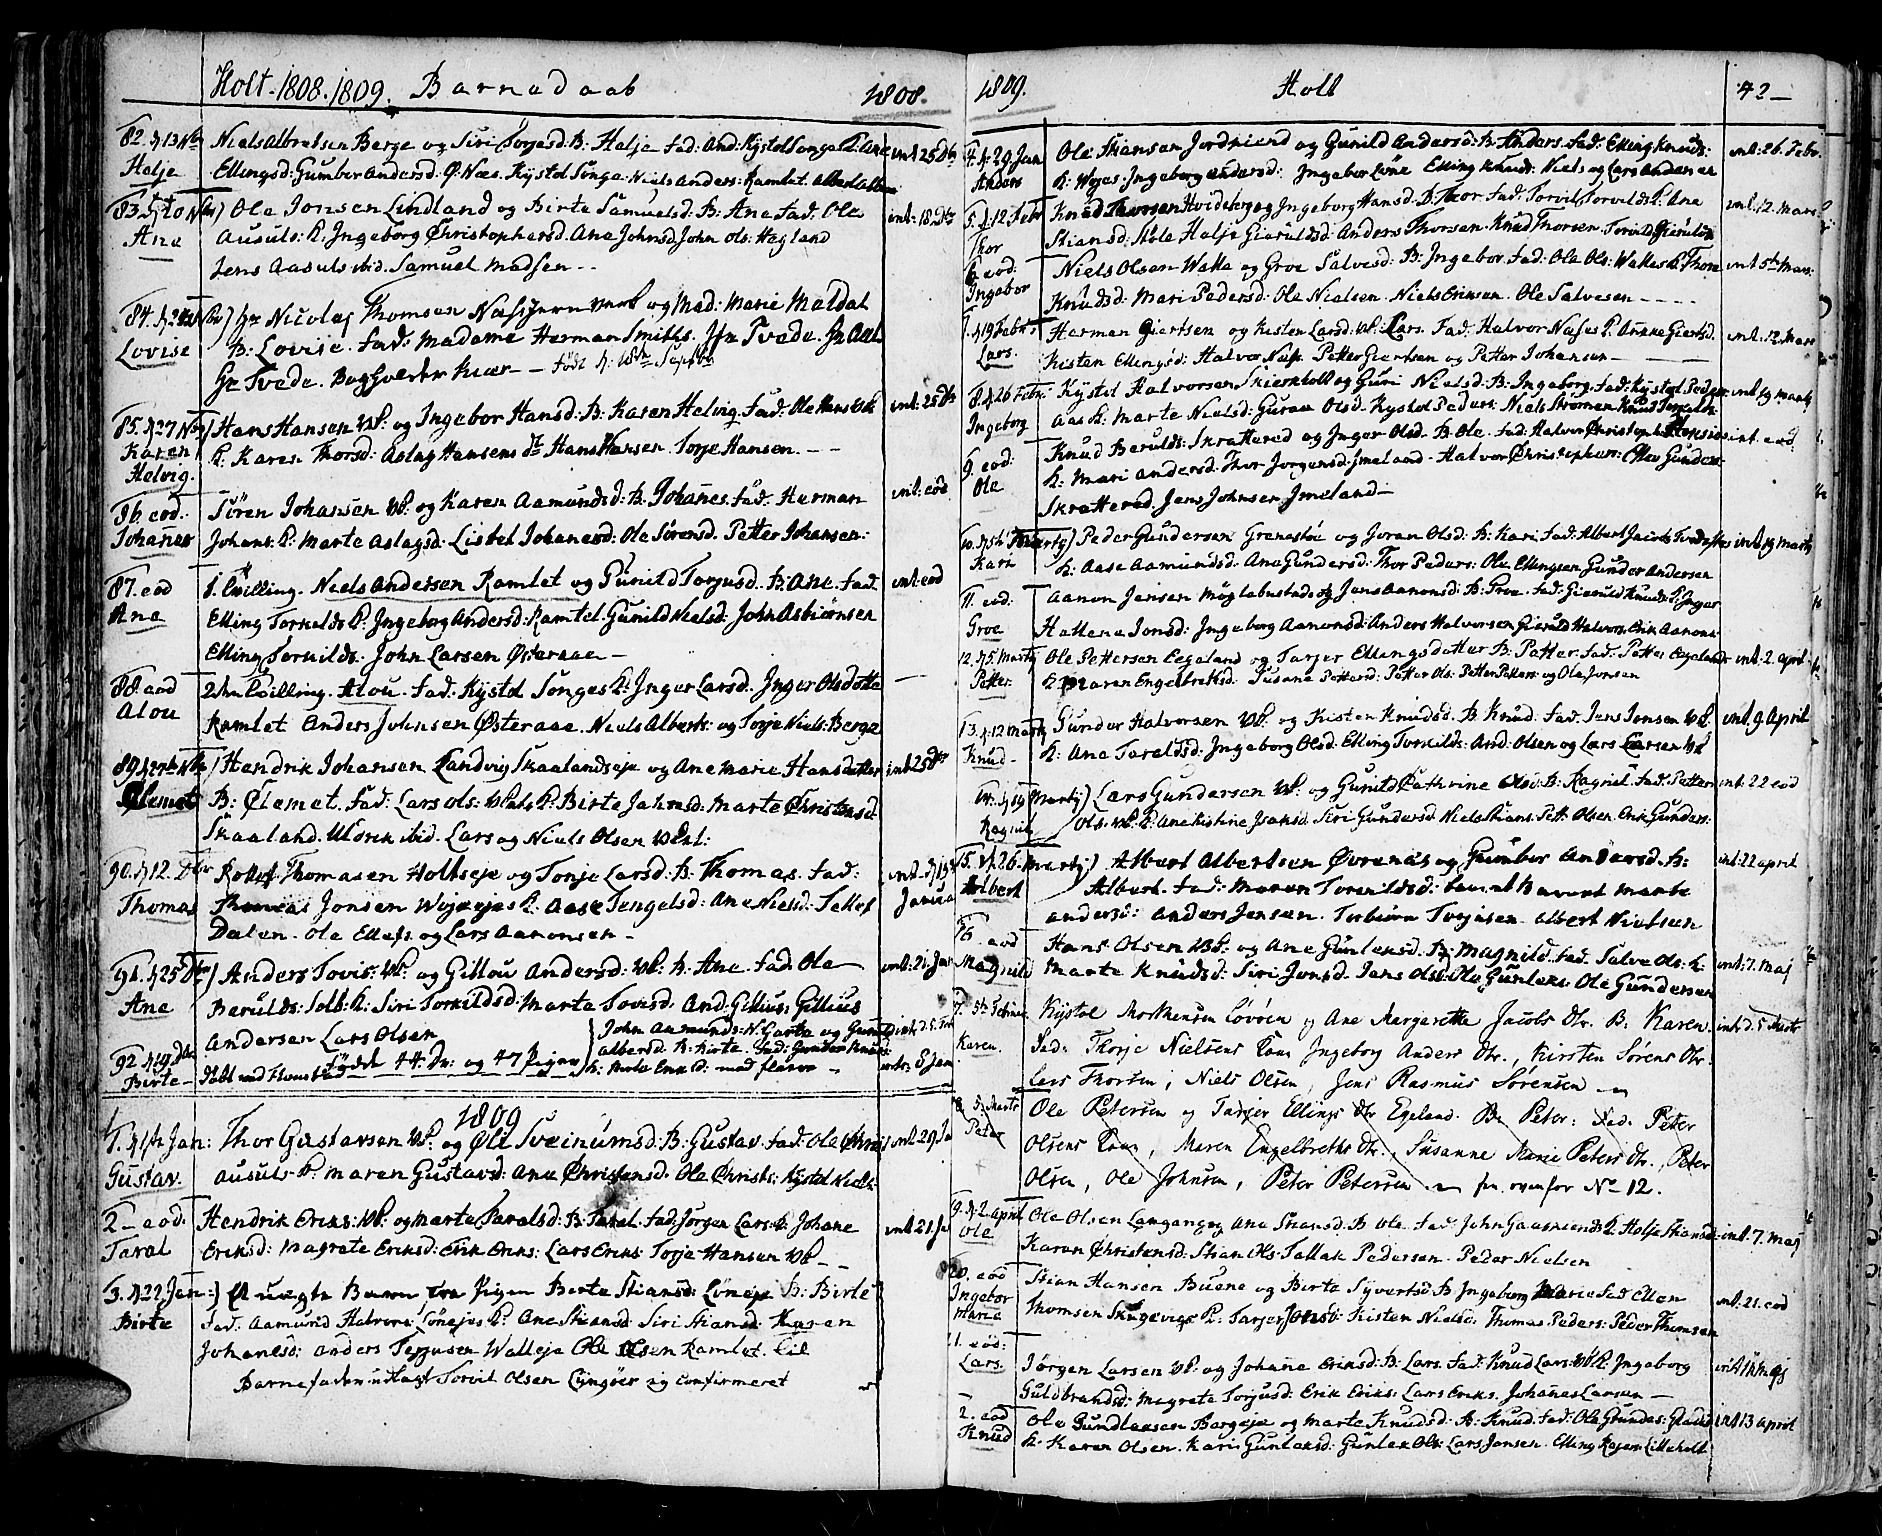 Holt - 1808. 1809. Barnedaab 1808.
82. d 13 Nov
Helje
Niels Albretsen Berge og Siri Torgesd: B: Helje fad: And: Kystol Songe K. Ane int: 25 Dbr
Ellingsd: Gumber Andersd: O: Næs. Kystol Songe Niels Anders: Ramlet. Albert
83. d 20 Nbr
Ane
Ole Jonsen Lindland og Birte Samuelsd: B: Ane fad: Ole int: 18. Dbr
Ausuls: K: Ingeborg Christophersd. Ane Johnsd John Ols: Hegland
Jens Aasuls ibid. Samuel Madsen - -
84.
Lovise
Hr Nicolaj Thomsen og Mad: Marie
B: Lovise. fad: Madame Herman Smiths. Jfr Tvede. Jfr
Hr Tvede. Kiær — født d.
85. d 27 Nbr
Karen
Helvig.
Hans Hansen WS: og Ingebor Hansd: B: Karen Helvig. fad: Ole Hans int: 25 Dbr
K. Karen Thorsd: Aslag Hansens Hans Hansen. Torje Hansen. - -
86. eod.
Johanes
Søren Johansen WS. og Karen Aamundsd: B: Johanes. fad: Herman int: eod
Johans: K: Marte Aslagsd: Lisbet Johanesd: Ole Sørensd. Petter Johansen:
87. eod
Ane
1. Tvilling. Niels Andersen Ramlet og Gunild Torjusd: B: Ane. fad. int: eod
Elling Torkilds K: Ingeborg Andersd: Ramlet. Gunild Nielsd: John Asbiørnsen
Elling Torkilds. John Larsen Østeraae —
88. eod
Alou
2den Tvilling. Alou. fad: Kystol Songes K: Inger Larsd. Inger Olsdatter —
Ramlet Anders Johnsen Østeraae. Niels Alberts: og Torje Niels: Berge
89.
Olemet
Hendrik Johansen Landvig Skaalandseje og Ane Marie Hansdatter int 25 Dbr
B: Olemet. fad: Lars Ols: K: Birte Jahnsd: Marte Christensd
Skaaland. Ulsrik ibid. Lars og Niels Olsen
90. d 12. Dbr
Thomas
Rollef Thomasen Holtseje og Tonje Larsd: B: Thomas. fad: int d 19
Thomas Jonsen Wejæejes K: Aase Tengelsd: Ane Nielsd: Tellef Januar
Dalen. Ole Ellefs og Lars Aanonsen —
91. d 25 Dbr
Ane
Anders Tovis: WS: og Gillou Andersd: WS: B: Ane. fad: Ole int: 21. Jan
Berulds: Solb: K: Siri Torkildsd: Marte Tovisd: And: Gillius, Gillius
Andersen Lars Olsen
92. d 19 Dbr
Birte —
John Aamunds: N: og Gunild
Albersd: B: Birte. fad: Gunder Knud
fødde 44: Dr: og 47 Piger
int: 8 Jan
1809
1. d 1ste Jan:
Gustav.
Thor Gustavsen WS: og Øli Sveinumsd: B: Gustav. fad: Ole Christ int 29 Ja
ausuls. K: Maren Gustavsd: Ane Christensd: Ole Christs: Kystol Niels:
2 — eod.
Taral
Hendrik Eriks: WS: og Marte Taralsd: B: Taral. fad: Jørgen Lars: K: Johane int: 21. Ja
Eriksd: Magrete Eriksd: Erik Eriks: Lars Eriks. Torje Hansen WS — -
3. d 22 Jan:
Birte
Et uægte Barn Pigen Berte Stiansd: Løneje B: Birte
fad: Aamund Halvors: Lønejes K: Ane Stiansd Siri Stiansd: Karen
Johanesd: Anders Terjusen Walleje Ole Olsen Ramlet. til
Barnefader udlagt Torvil Olsen Lyngøer og Confirmeret
1809. Holt 42 —
4. d 29 Jan
Anders
Ole Stiansen Jordkiend og Gunild Andersd: B: Anders. fad: Elling Knuds: int: 26. Febr.
K: Wejes: Ingeborg Andersd: Ingebor Løne Elling Knuds: Niels og Lars
5. d 12 Febr
Thor
Knud Thorsen Hvideberg og Ingeborg Hansd. B: Thor. fad: Torvil Torvilds K. Ane int: 12. Mars
Stiansd: Støle Helje Gieruldsd: Anders Thorsen Knud Thorsen Torvild
6. eod:
Ingebor
Niels Olsen Walle og Groe Salvesd: B: Ingebor. fad: Ole Ols: Walles K: Thore int 5te Mar:
Knudsd: Mari Pedersd: Ole Nielsen. Niels Eriksen. Ole Salvesen - - - -
7. d 19 Febr
Lars.
Herman Giertsen og Kisten Larsd: WS: Lars. fad: Halvor Næses K. Anne Giertsd: int: 12. Mar
Kisten Ellingsd: Halvor Næs. Petter Giertsen og Petter Johansen —
8. d 26 Febr:
Ingeborg
Kystol Halvorsen Skierkholt og Guri Nielsd: B: Ingeborg. fad: Kystol Peders int 19 Martj
Aas K: Marte Nielsd: Guran Olsd. Kystol Peders: Niels Strømen Knud
9. eod:
Ole
Knud Berulds: Skratterød og Inger Olsd. B. Ole. fad: Halvor Christoph int. eod
K: Mari Andersd: Thor Jørgensd: Jmeland. Halvor Christophers: Olev Gunders
Skratterød. Jens Johnsen Jmeland —
10. d 5te Martj
Kari
Peder Gundersen Grenestøe og Joran Olsd: B: Kari fad: Albert Jacobs int 19 Martj
K: Aase Aamundsd: Ane Gundersd: Thor Peders: Ole Ellingsen Gunder Andersen
11. eod:
Groe
Aanon Jensen og Jens Aanonsd: B: Groe. fad: Gieruld Knuds: K: Inger
Hattene Jonsd: Ingeborg Aanonsd: Anders Halvorsen Gieruld Halvors: Erik Aanons
12. d 5. Martj
Petter
Ole Pettersen Eegeland og Tarjer Ellingsdatter B: Petter. fad: Petter Eegeland int: 2. april
K: Maren Engelbreksd: Susane Pettersd: Petter Ols: Petter Petters: og Ole Jonsen
13. d 12 Martj
Knud —
Gunder Halvorsen WS. og Kisten Knudsd. B. Knud. fad: Jens Jensen WS. int. 9 April
K: Ane Taraldsd: Ingeborg Olsd. Elling Torkilds: And: Olsen og Lars Larsen WS
14. d 19 Martj
Ragnil
Lars Gundersen WS: og Gunild Cathrine Olsd: B: Ragnil. fad: Petter int: 22 eod
Ols: WS. K: Ane Kistine Isaksd: Siri Gundersd Niels Stians: Pett: Olsen Erik Gunders:
15. d 26. Martj
Albert
Albert Albertsen Øvrenæs og Gumber Andersd. B: int: 22 april
Albert. fad: Maren Torkildsd: Marte
Andersd: Anders Jensen. Torbiørn Torjusen. Albert Nielsen
16. eod
Magnild
Hans Olsen WS. og Ane Gunleksd. B: Magnild. fad: Salve Ols: K: int: 7. Maj
Marte Knudsd: Siri Jonsd. Jens Olsd: Ole Gunleks. Ole Gundersen
7. 5te Februar
Karen.
Kystol Mortensen Løvøen og Ane Margarethe Jacobs Dtr. B: Karen. int d. 5 Marts
Fad: Thorje Nielsens Kone Ingeborg Anders Dtr., Kirsten Sørens Dtr.
Lars Thorsen, Niels Olsen, Jens Rasmus Sørensen —
8. 5. Marts
Peter
Ole Petersen og Tarjer Ellings Dtr Egeland. B: Peter: Fad: Peter
Olsens Kone, Maren Engelbreths Dtr., Susanne Marie Peters Dtr., Peter
Olsen, Ole Johnsen, Peter Petersen — see ovenfor No 12.
9. d 2 april
Ole
Ole Olsen Langang og Ane Stiansd: B Ole fad: John K. Helje Stiansd: int. 7. Maj
Karen Christensd: Stian Ols: Tallak Pedersen. Peder Nielsen
20. eod
Ingebor
Marie
Stian Hansen Buene og Birte Syvertsd B: Ingeborg Marie fad Ellen int: 21. eod
Thomsen K. Tarjer Jonsd: Kisten Nielsd: Thomas Peders: Peder Thomsen
21. eod:
Lars.
Jørgen Larsen WS. og Johane Eriksd: B: Lars. fad: Knud Lars: WS K: Ingeborg
Guldbrandsd: Magrete Torjusd: Erik Eriks: Lars Eriks. Johanes Larsen —
2. eod
Knud
Ole Gundleksen Bergeje og Marte Knudsd: B: Knud. fad: Ole Gunders: int 13 april
K: Karen Olsen. Kari Gunleksd: Gunlek Ols: Lars Jonsen. Elling Lilleholt